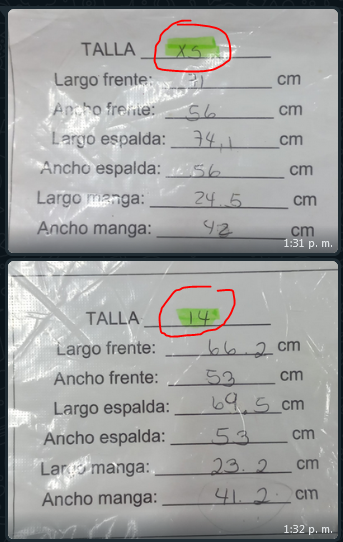 TALLA XS
Largo frente: 71 cm
Ancho frente: 56 cm
Largo espalda: 74,1 cm
Ancho espalda: 56 cm
Largo manga: 24.5 cm
Ancho manga: 42 cm
1:31 p. m.
TALLA 14
Largo frente: 66.2 cm
Ancho frente: 53 cm
Largo espalda: 69,5 cm
Ancho espalda: 53 cm
Largo manga: 23.2 cm
Ancho manga: 41.2 cm
1:32 p. m.